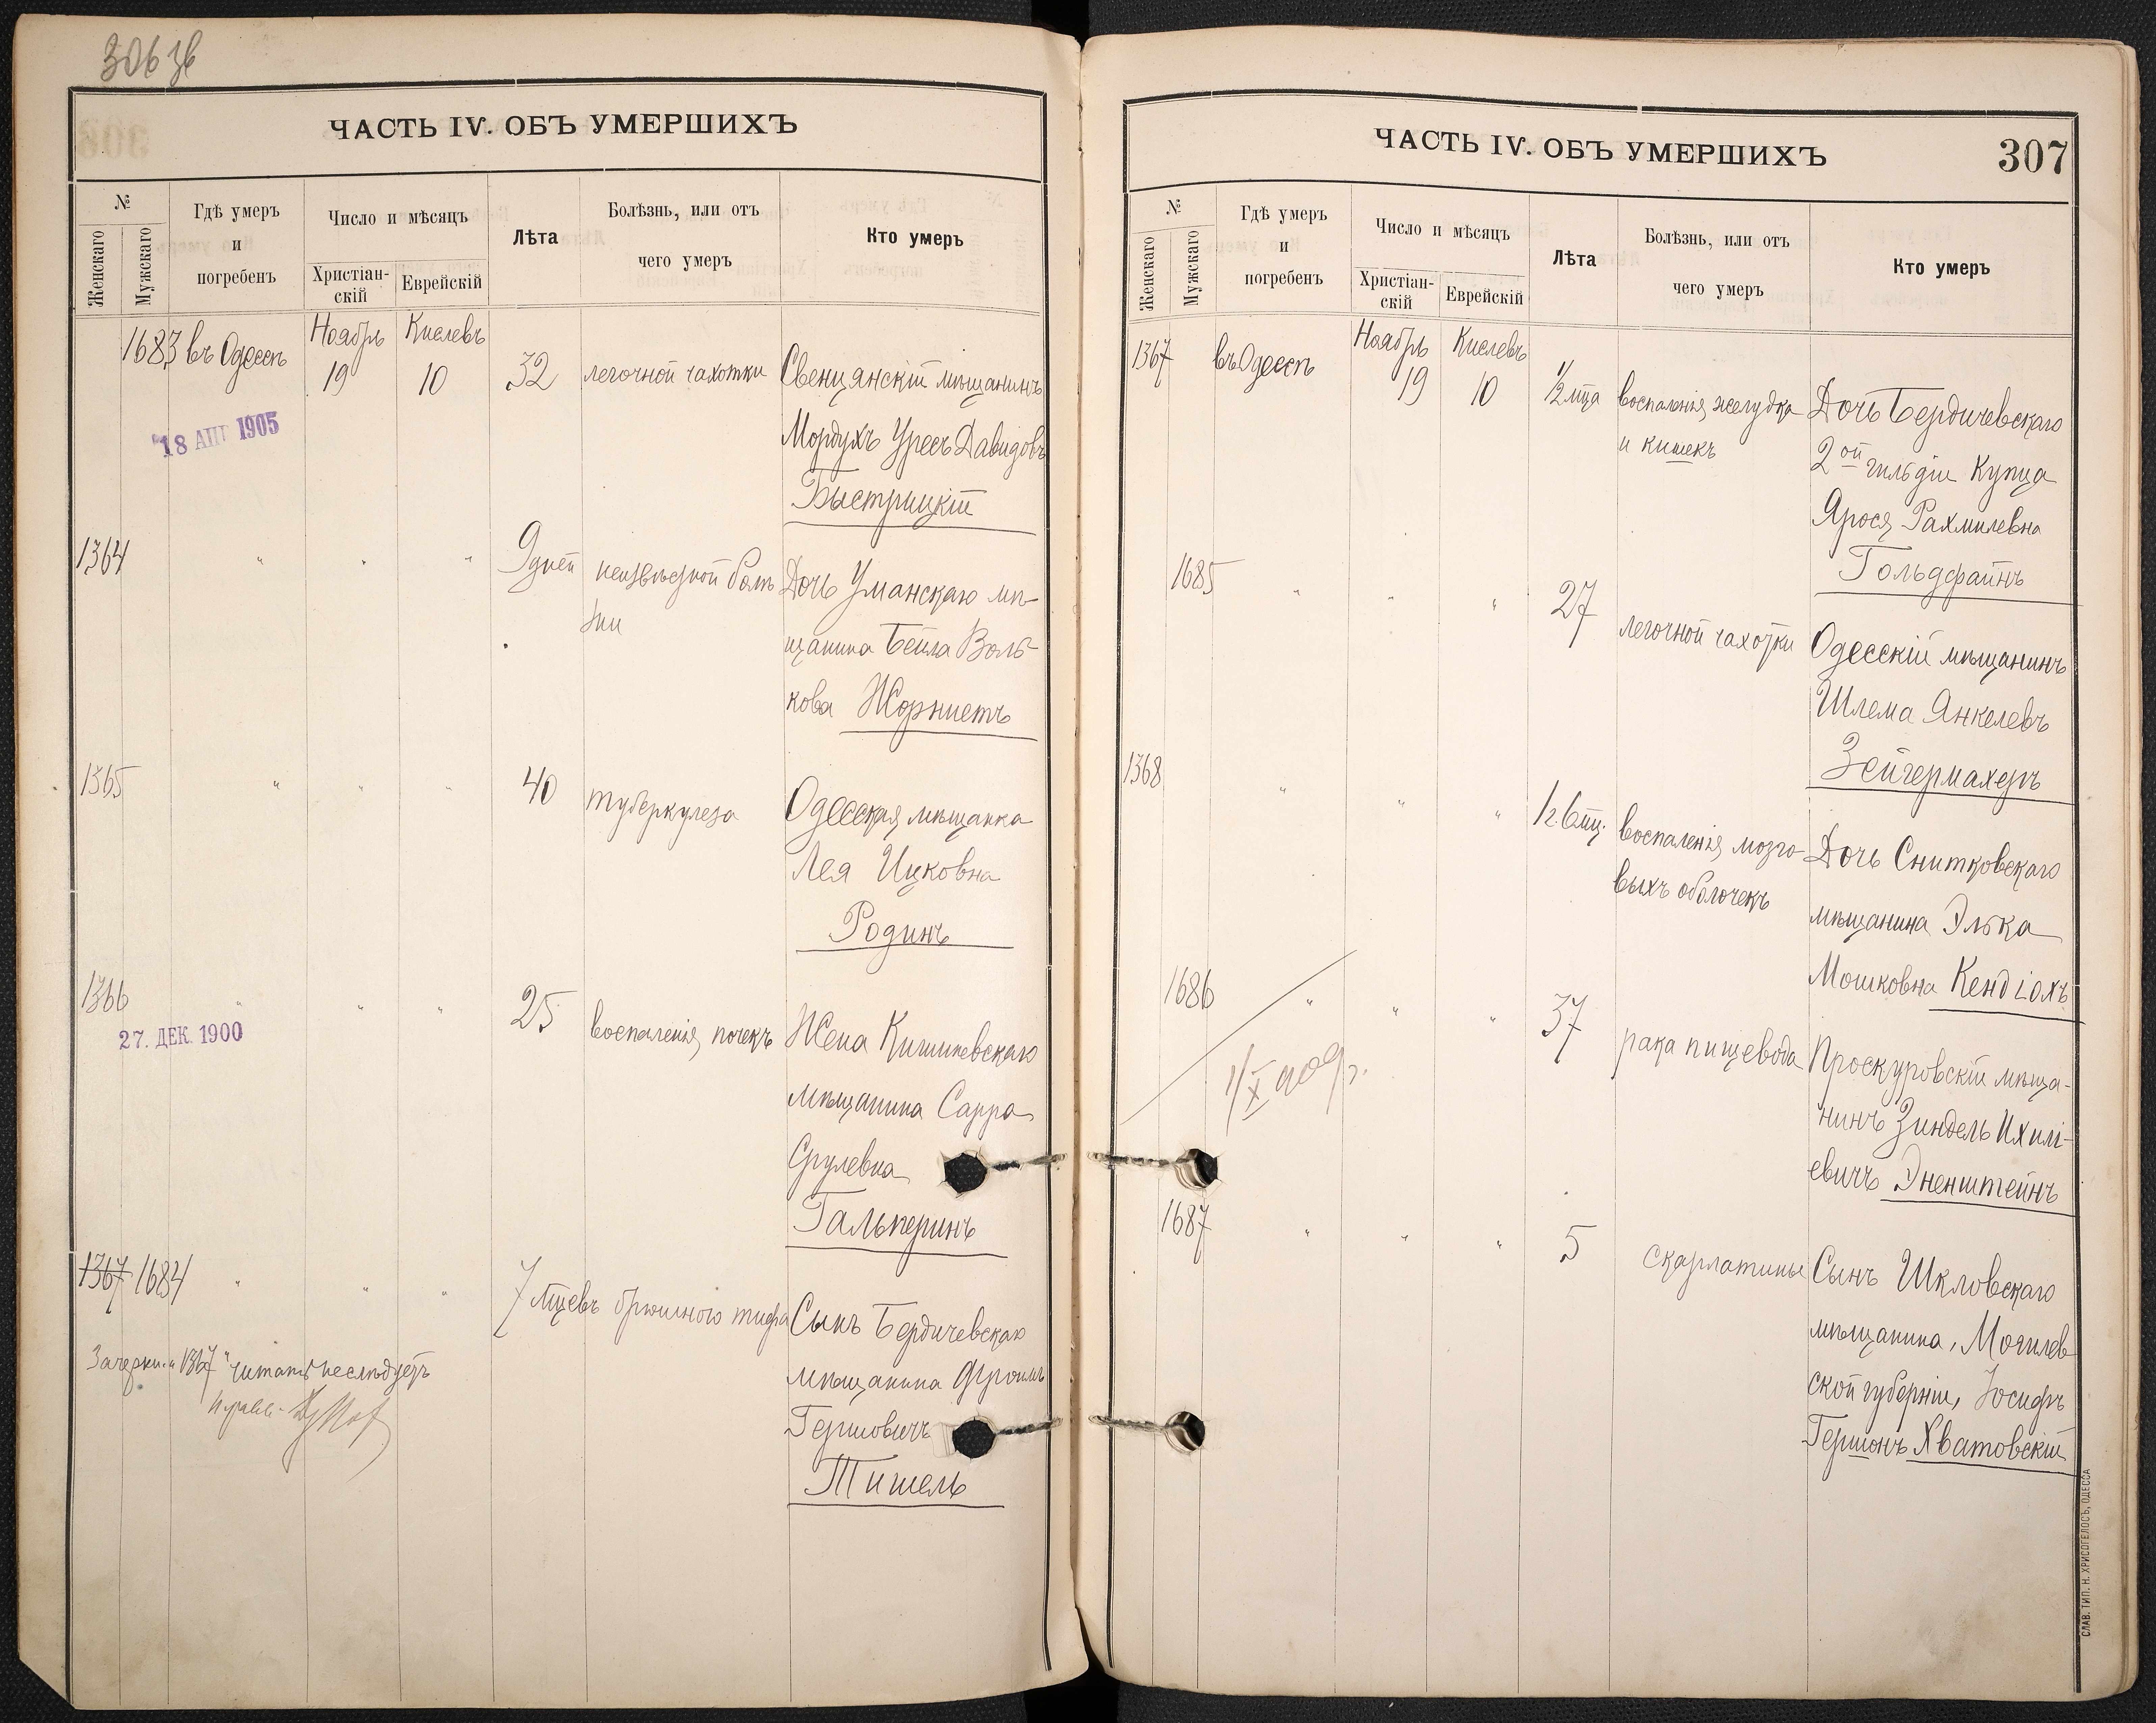 306 зв
ЧАСТЬ IV. ОБЪ УМЕРШИХЪ
№
Женскаго
Мужскаго
Гдѣ умеръ
и
погребенъ
Число и мѣсяцъ
Христіан-
скій
Еврейскій
Лѣта
Болѣзнь, или отъ
чего умеръ
Кто умеръ
1683 въ Одессѣ
Ноябрь
19
Кислевъ
10
32
легочной чахотки
Свенцянскій мѣщанинъ
Мордухъ Уресъ Давидовъ
Быстрицкій
18 АПР 1905
1364
" " "
9 дней
неизвѣстной болѣ
зни
Дочь Уманскаго мѣ-
щанина Бейла Воль-
кова Жорнистъ
1365
" " "
40
туберкулеза
Одесская мѣщанка
Лея Ицковна
Родинъ
1366
" " "
27. ДЕК. 1900
25
воспаленія почекъ
Жена Кишиневскаго
мѣщанина Сарра
Срулевна
Гальперинъ
1367 1684
" " "
7 мцевъ
брюшного тифа
Сынъ Бердичевскаго
мѣщанина Фроимъ
Гершовичъ
Тишель
Зачеркн. "1367" читать не слѣдуетъ
ЧАСТЬ IV. ОБЪ УМЕРШИХЪ
307
№
Женскаго
Мужскаго
Гдѣ умеръ
и
погребенъ
Число и мѣсяцъ
Христіан-
скій
Еврейскій
Лѣта
Болѣзнь, или отъ
чего умеръ
Кто умеръ
1367
въ Одессѣ
Ноябрь
19
Кислевъ
10
1/2 мца
воспаленія желудка
и кишекъ
Дочь Бердичевскаго
2ой гильдіи Купца
Ярося Рахмилевна
Гольдфайнъ
1685
" " "
27
легочной чахотки
Одесскій мѣщанинъ
Шлема Янкелевъ
Зейгермахеръ
1368
" " "
1г. 6 мц.
воспаленія мозго-
выхъ оболочекъ
Дочь Снитковскаго
мѣщанина Элька
Мошковна Кендіохъ
1686
" " "
1/X 909 г.
37
рака пищевода
Проскуровскій мѣща-
нинъ Зиндель Ихилі-
евичъ Эненштейнъ
1687
" " "
5
скарлатины
Сынъ Шкловскаго
мѣщанина, Могилев
ской губерніи, Іосифъ
Гершонъ Хватовскій
СЛАВ. ТИП. Н. ХРИСОГЕЛОСЪ, ОДЕССА